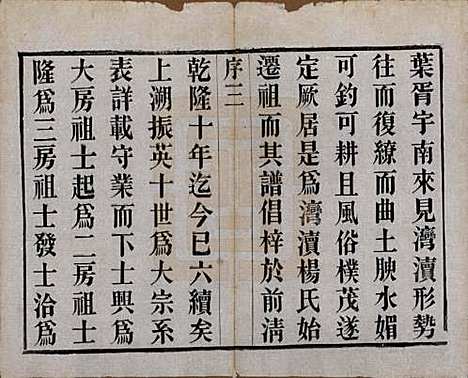 葉胥宇南來見灣瀆形勢
往而復繚而曲土腴水媚
可釣可耕且風俗樸茂遂
定厥居是爲灣瀆楊氏始
遷祖而其譜倡梓於前淸
序三
乾隆十年迄今已六續矣
上溯振英十世爲大宗系
表詳載守業而下士興爲
大房祖士起爲二房祖士
隆爲三房祖士發士洽爲